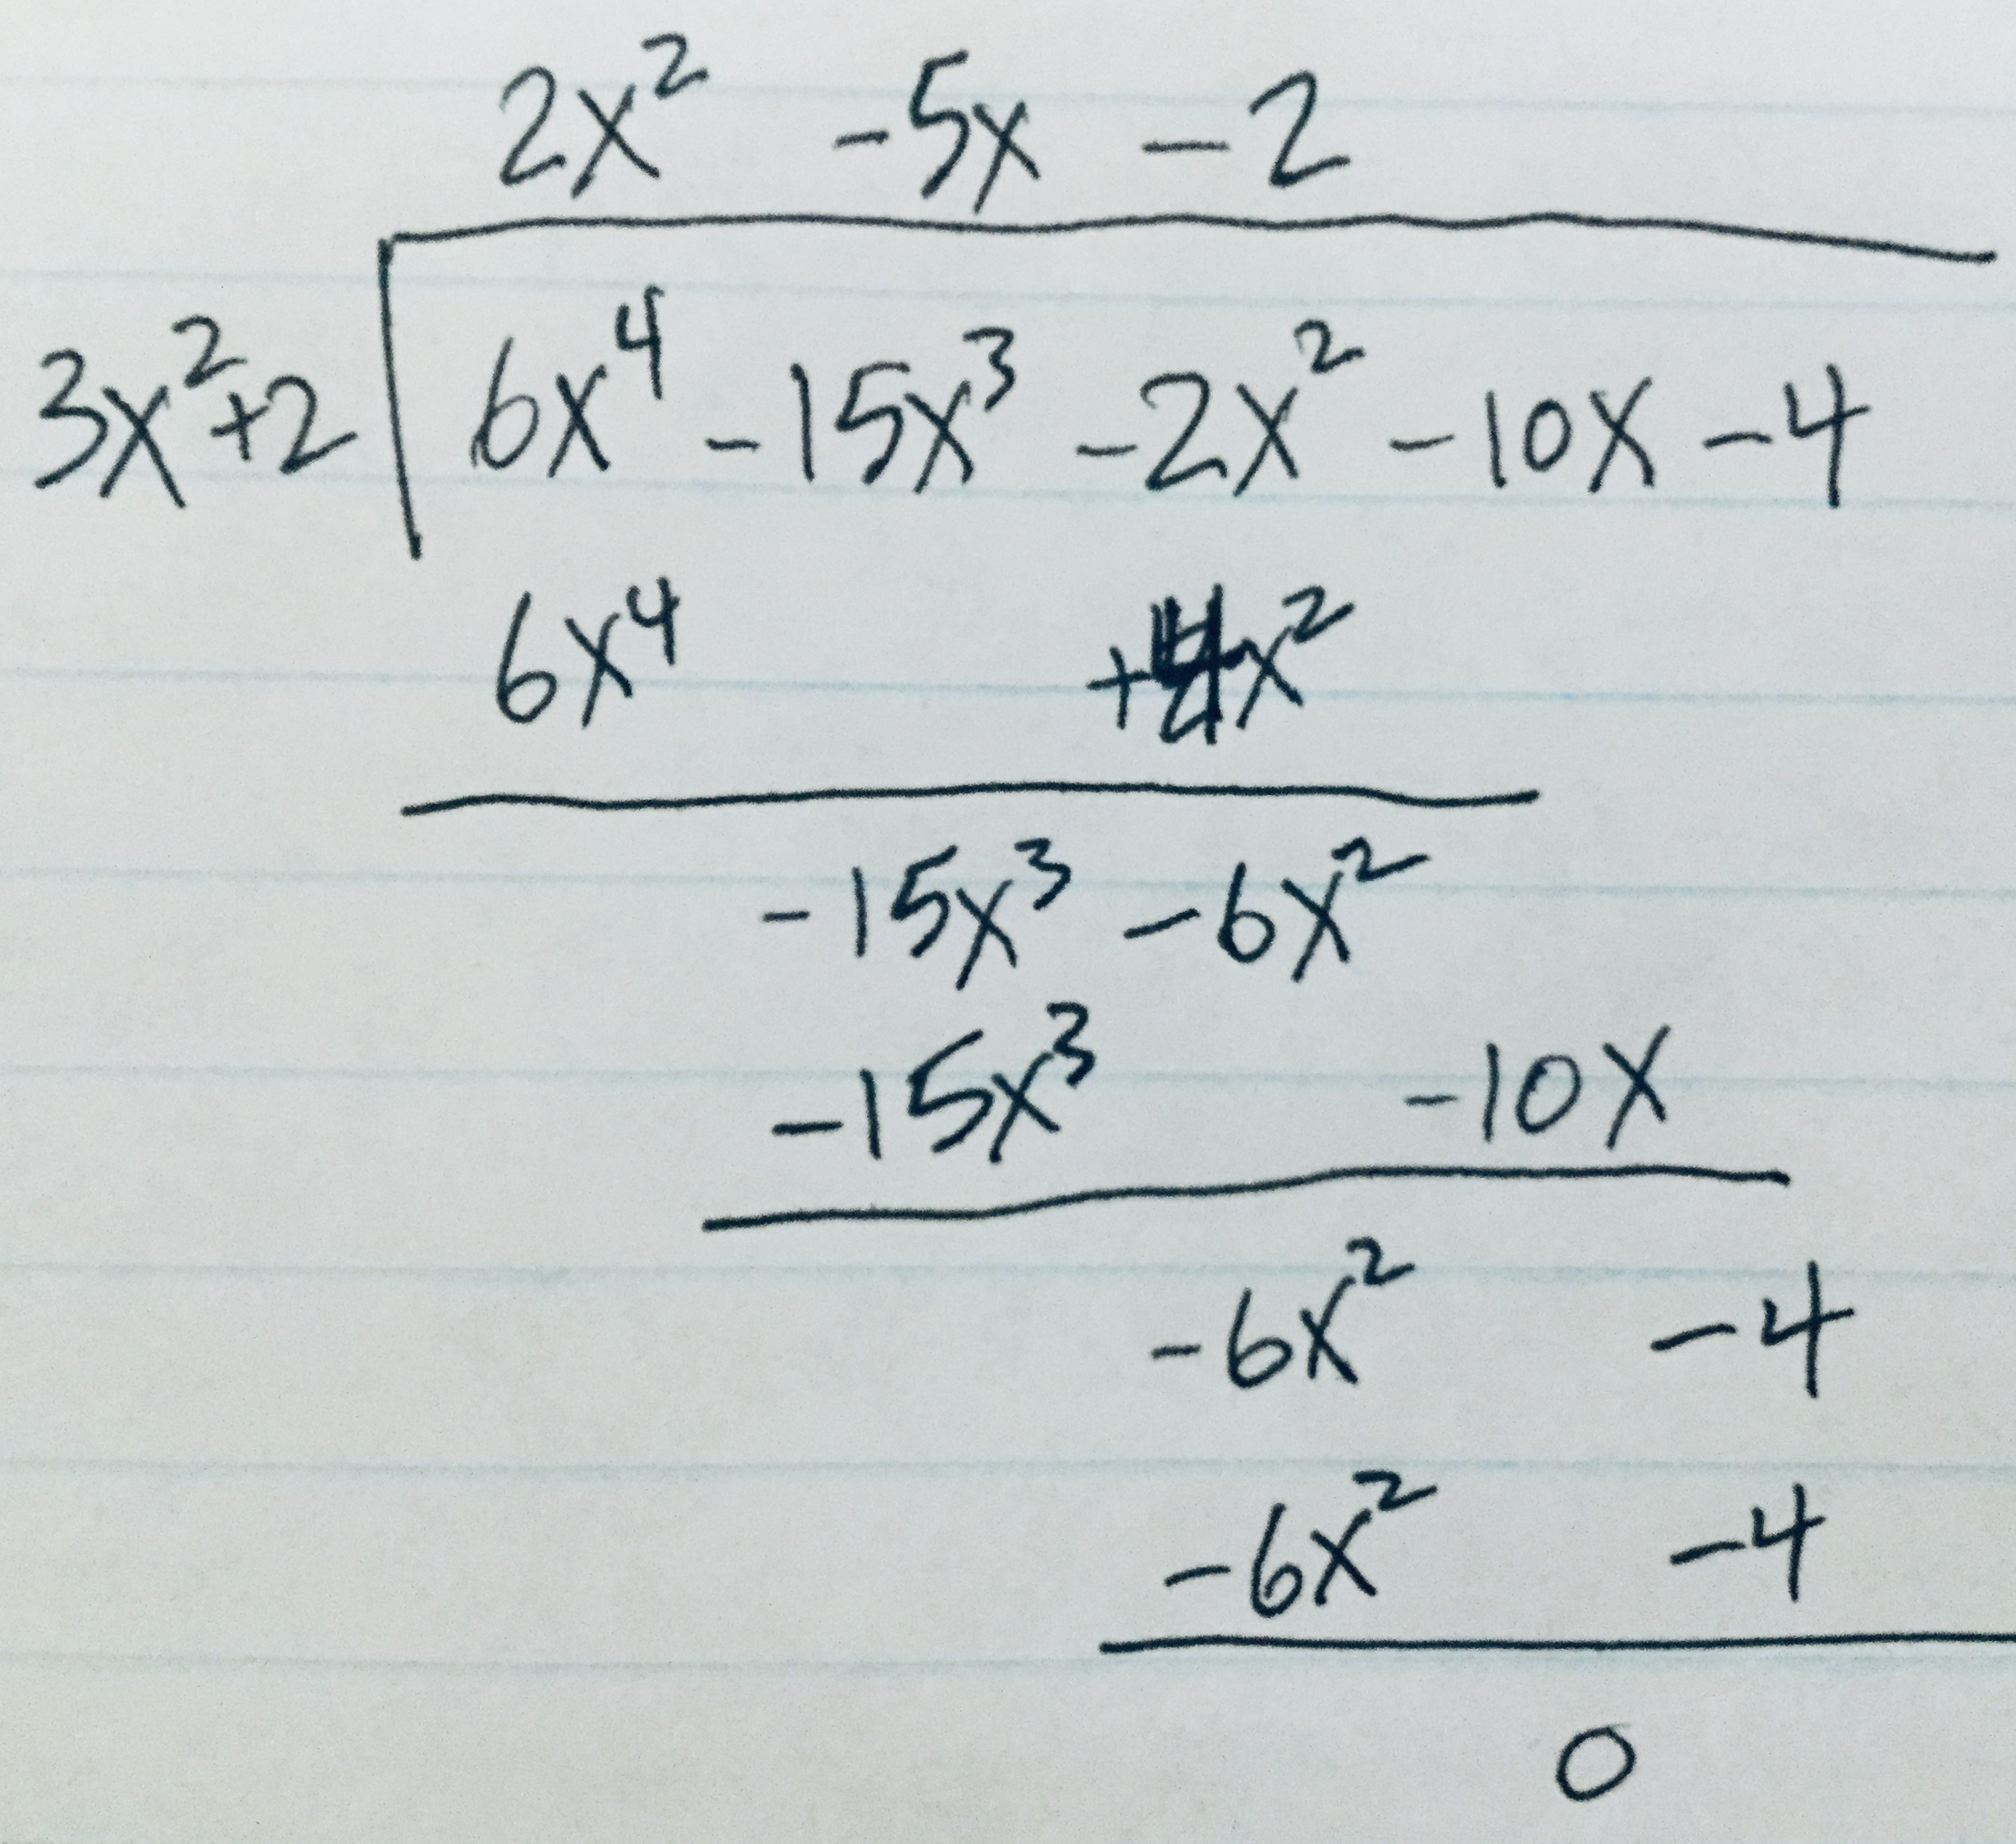 2x² -5x -2
3x²+2 6x⁴ -15x³ -2x² -10x -4
6x⁴ +4x²
-15x³ -6x²
-15x³ -10x
-6x² -4
-6x² -4
0